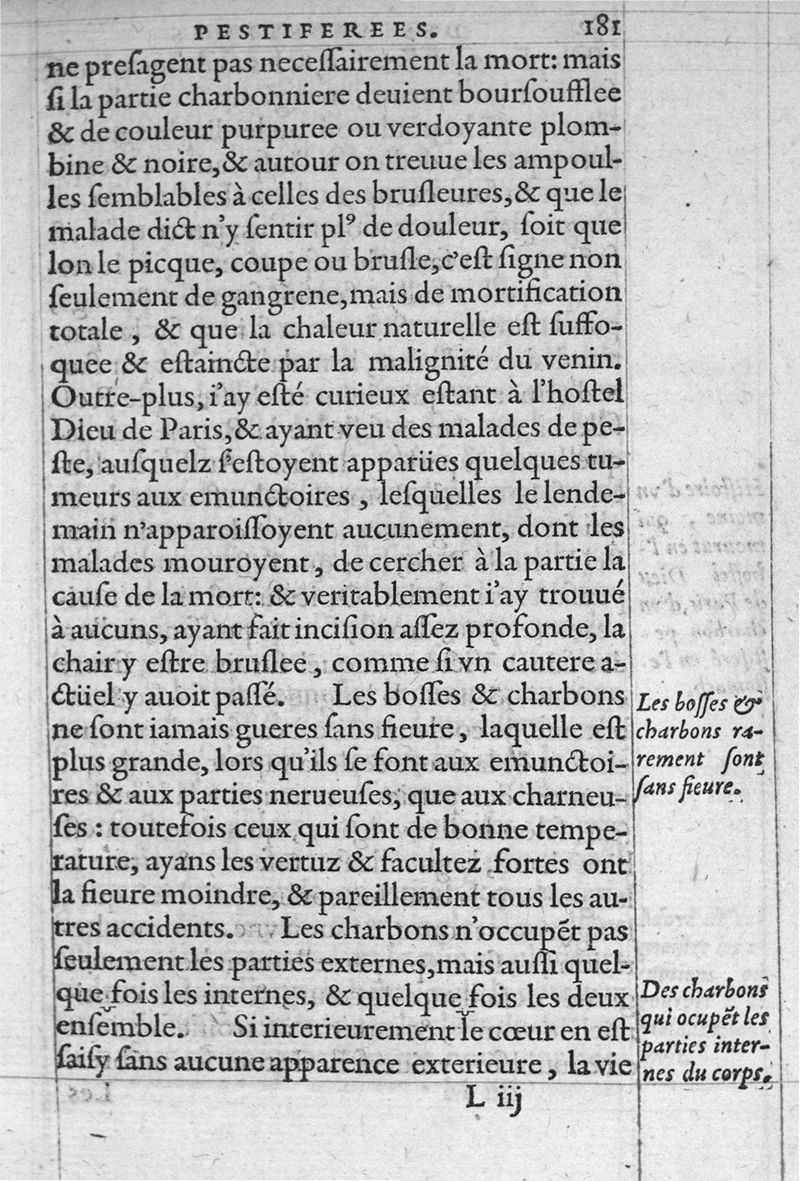 PESTIFEREES. 181
ne preſagent pas neceſſairement la mort: mais
ſi la partie charbonniere deuient bourſoufflee
& de couleur purpuree ou verdoyante plom-
bine & noire,& autour on treuue les ampoul-
les ſemblables à celles des bruſleures,& que le
malade dict n'y ſentir plꝰ de douleur, ſoit que
lon le picque, coupe ou bruſle,c'eſt ſigne non
ſeulement de gangrene,mais de mortification
totale , & que la chaleur naturelle eſt ſuffo-
quee & eſtaincte par la malignité du venin.
Outre-plus, i'ay eſté curieux eſtant à l'hoſtel
Dieu de Paris,& ayant veu des malades de pe-
ſte, auſquelz ſ'eſtoyent apparües quelques tu-
meurs aux emunctoires , leſquelles le lende-
main n'apparoiſſoyent aucunement, dont les
malades mouroyent, de cercher à la partie la
cauſe de la mort: & veritablement i'ay trouué
à aucuns, ayant fait inciſion aſſez profonde, la
chair y eſtre bruſlee , comme ſi vn cautere a-
ctüel y auoit paſſé. Les boſſes & charbons
ne ſont iamais gueres ſans fieure, laquelle eſt
plus grande, lors qu'ils ſe font aux emunctoi-
res & aux parties nerueuſes, que aux charneu-
ſes : toutefois ceux qui ſont de bonne tempe-
rature, ayans les vertuz & facultez fortes ont
la fieure moindre, & pareillement tous les au-
tres accidents. Les charbons n'occupẽt pas
ſeulement les parties externes,mais auſſi quel-
que fois les internes, & quelque fois les deux
enſemble. Si interieurement le cœur en eſt
ſaiſy ſans aucune apparence exterieure , la vie
L iij
Les boſſes &
charbons ra-
rement ſont
ſans fieure.
Des charbons
qui ocupẽt les
parties inter-
nes du corps.